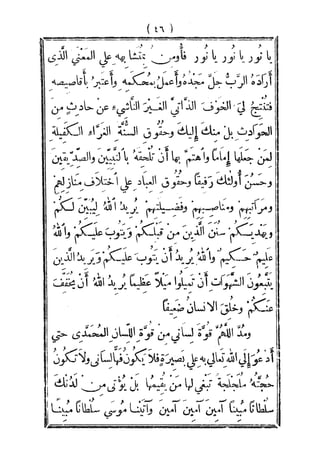 ( ٤٦ )
يا نور يا نور يا نور فأومن بمتشابهه على المعنى الذى
أراده الرب جل مجده وأعمل بمحكمه وأعتبر بأقاصيصه
فتنتج لى الخوف الذاتى الغير الناشىء عن حادث من
الحوادث بل منك إليك وحقوق السنة الغراء الكفيلة
لمن جعلها إماما وأهتم بها أن تلحقه بالنبيين والصديقين
وحسن أولئك رفيقا وحقوق العباد على اختلاف منازلهم
ومراتبهم ومناصبهم وفضيلتهم يريد الله ليبين لكم
ويهديكم سنن الذين من قبلكم ويتوب عليكم والله
عليم حكيم والله يريد أن يتوب عليكم ويريد الذين
يتبعون الشهوات أن تميلوا ميلا عظيما يريد الله أن يخفف
عنكم وخلق الانسان ضعيفا
ومد اللهم قوة لسانى من قوة اللسان المحمدى حتى
أدعو إلى الله تعالى به على بصيرة فلا يكون فها لسانى ولا تكون
حجته ملجلجة تبغى لها من يقيمها بل يؤتى من لدنك
سلطانا مبينا آمين آمين آمين وآتينا موسى سلطانا مبينا